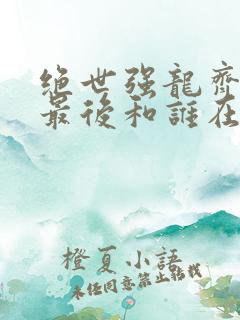 绝世强龍齊
最後和誰在
橙夏小語
未经同意禁止转载